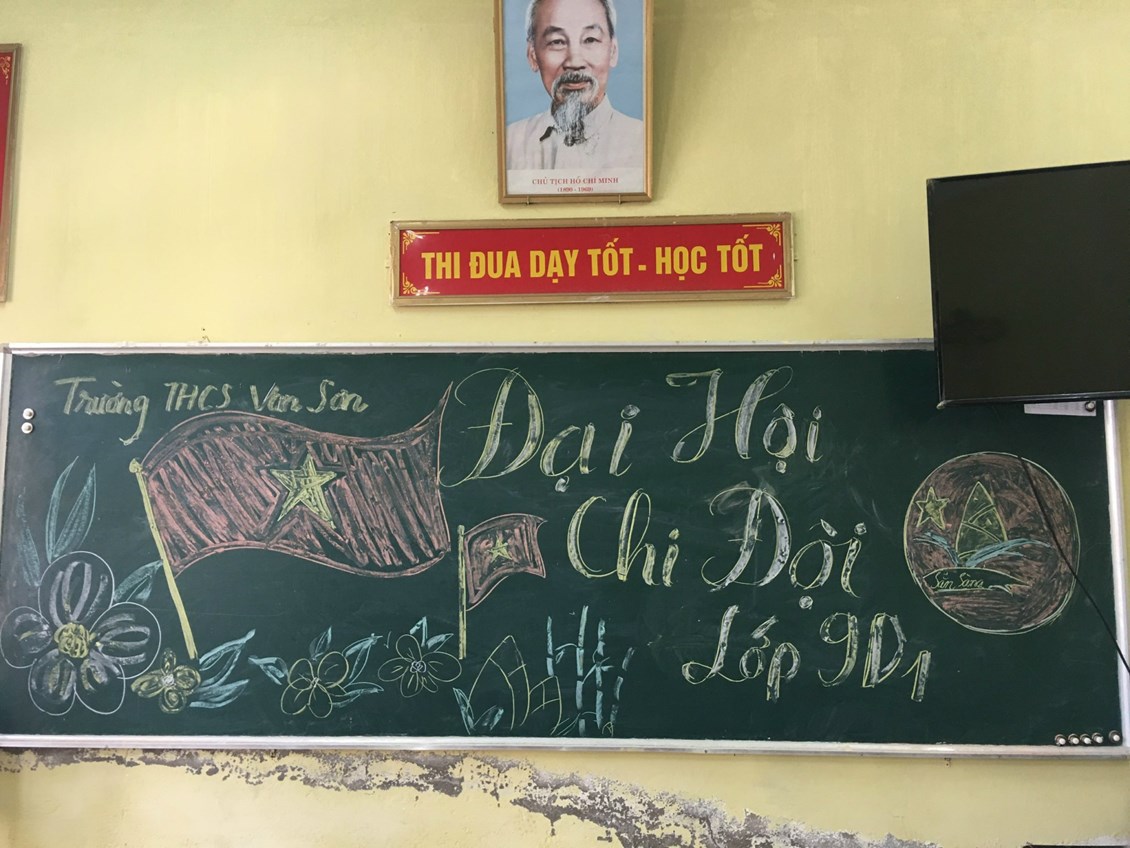 CHỦ TỊCH HỒ CHÍ MINH
(1890 - 1969)
THI ĐUA DẠY TỐT - HỌC TỐT
Trường THCS Vân Sơn
Đại Hội
Chi Đội
Lớp 9D1
Sẵn Sàng